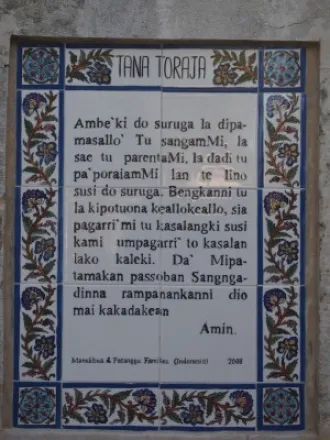 TANA TORAJA
Ambe`ki do suruga la dipa-
masallo` Tu sangamMi, la
sae tu parentaMi, la dadi tu
pa`poraiamMi lan te lino
susi do suruga. Bengkanni tu
la kipotuona keallokeallo, sia
pagarri`mi tu kasalangki susi
kami umpagarri` to kasalan
lako kaleki. Da` Mipa-
tamakan passoban Sangnga-
dinna rampanankanni dio
mai kakadakean
Amin.
& Families (Indonesia) 2008